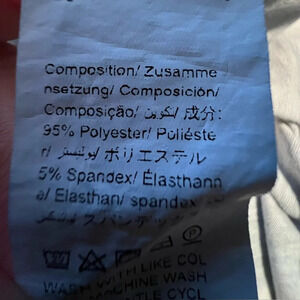 Composition/ Zusamme
nsetzung/ Composición/
Composição/ تكوين/ 成分:
95% Polyester/ Poliéste
r/ بوليستر/ ポリエステル
5% Spandex/ Élasthann
e/ Elasthan/ spandex
スパンデックス
WASH WITH LIKE COL
MACHINE WASH
CYCL